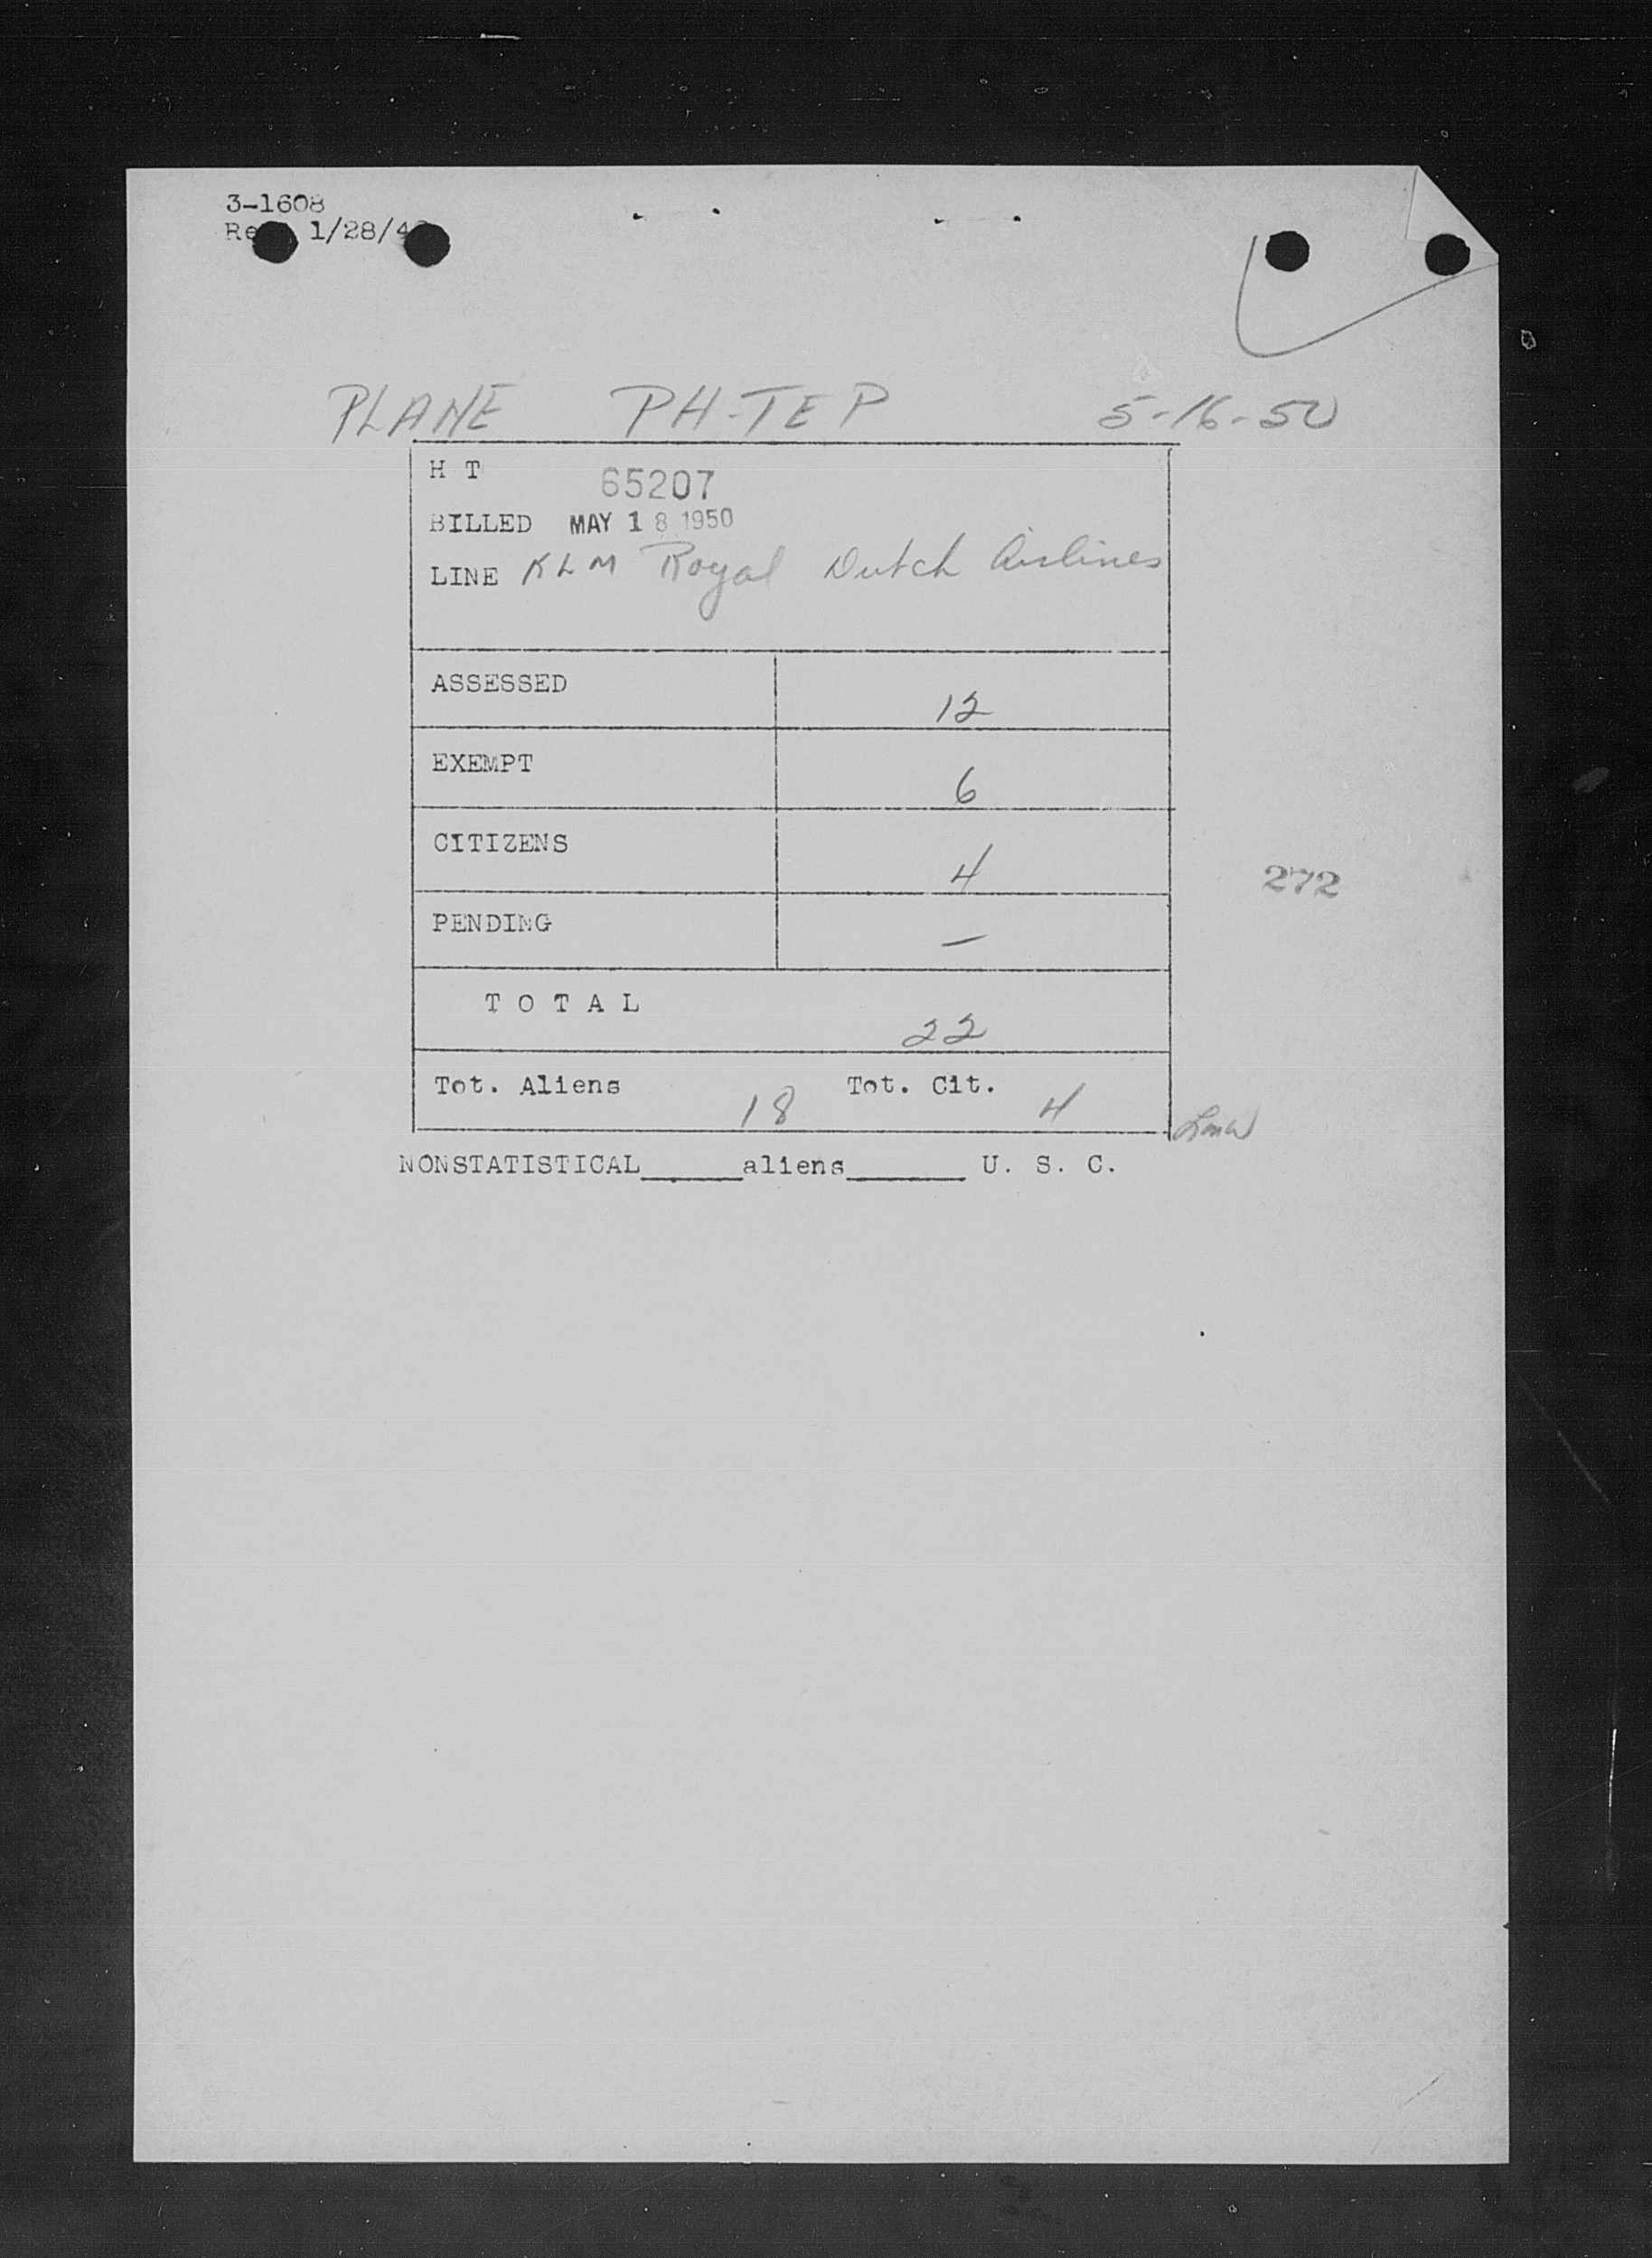 3-1608
1/28/4
PLANE PH-TEP 5-16-50
H T 65207
BILLED MAY 18 1950
LINE KLM Royal Dutch Airlines
ASSESSED 12
EXEMPT 6
CITIZENS 4
272
PENDING —
T O T A L 22
Tot. Aliens 18 Tot. Cit. 4
NONSTATISTICAL______aliens_______ U. S. C.